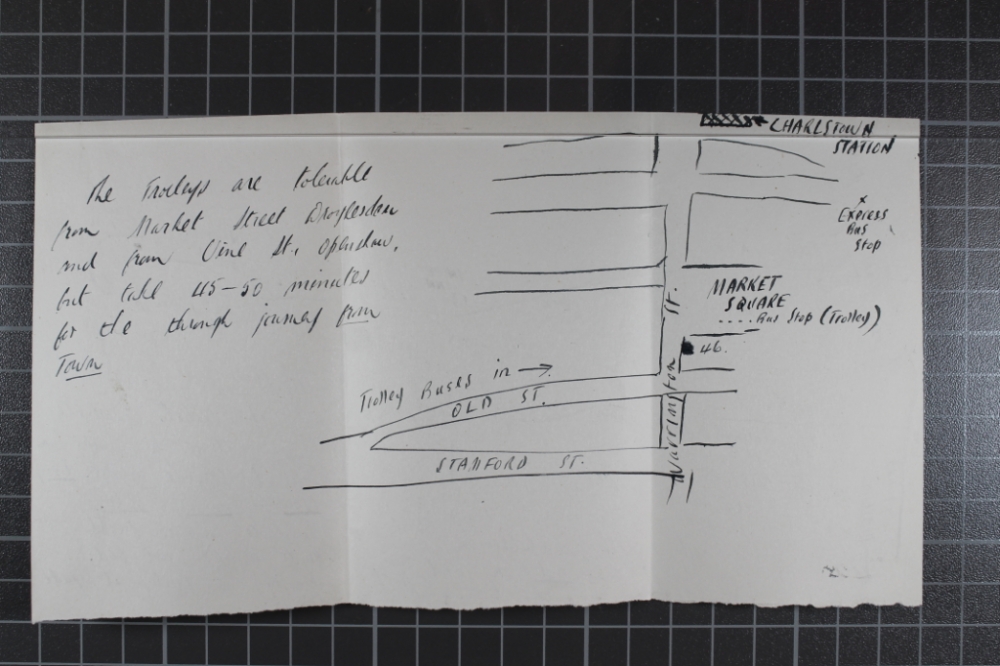 The Trolleys are tolerable
from Market Street Droylesden
and from Vine St., Openshaw,
but take 45-50 minutes
for the through journey from
Town
CHARLSTOWN
STATION
x
EXPRESS
Bus
Stop
MARKET
SQUARE
.... Bus Stop (Trolley)
46.
Warrington St.
Trolley Buses in →
OLD ST.
STAMFORD ST.